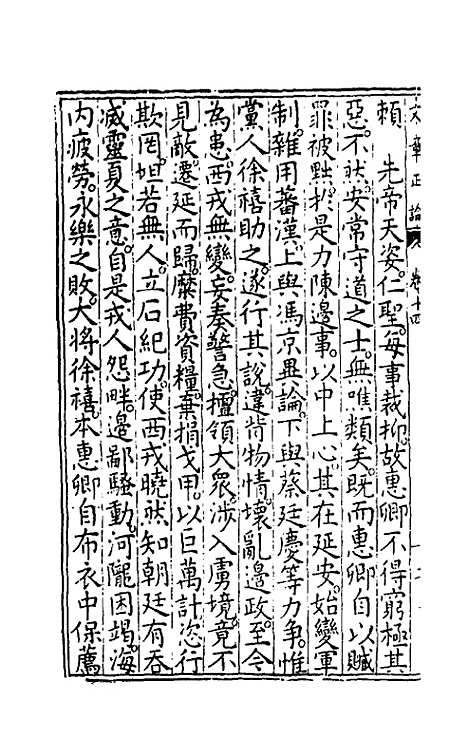 文章正論 卷十四
頼 先帝天姿仁聖。每事裁抑。故惠卿不得窮極其
惡。不然。安常守道之士。無噍類矣。既而惠卿自以贓
罪被黜。於是力陳邊事。以中上心。其在延安。始變軍
制。雜用蕃漢。上與馮京異論。下與蔡廷慶等力爭。惟
黨人徐禧助之。遂行其說。違背物情。壞亂邊政。至今
為患。西戎無變。妄奏警急。擅領大衆。涉入虜境。竟不
見敵。遷延而歸。糜費資糧。棄捐戈甲。以巨萬計。恣行
欺罔。坦若無人。立石紀功。使西戎曉然知朝廷有吞
威靈夏之意。自是戎人怨畔。邊鄙騷動。河隴困竭。海
内疲勞。永樂之敗。大将徐禧。本惠卿自布衣中保薦